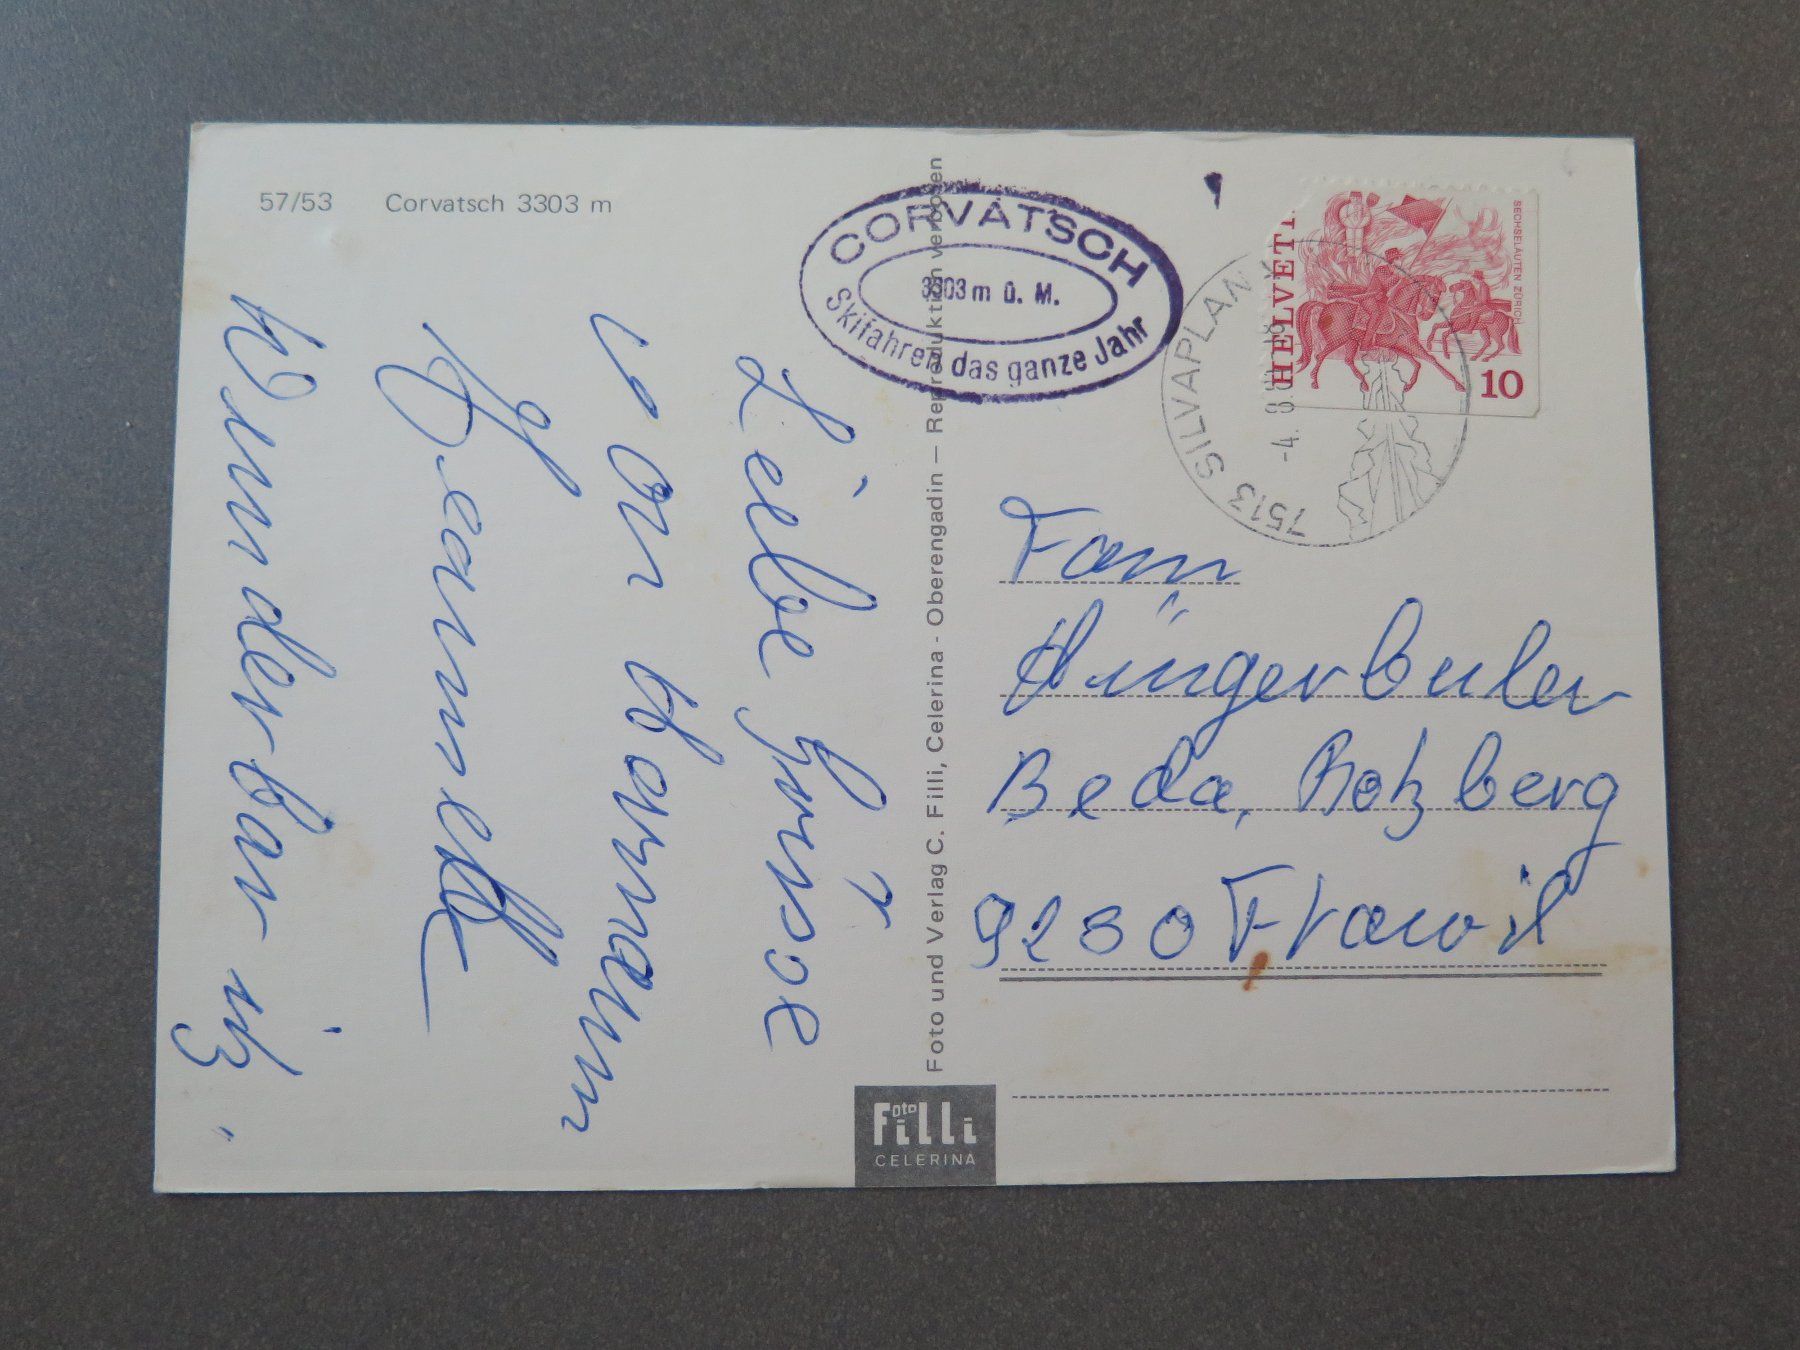 57/53 Corvatsch 3303 m
CORVATSCH
3303 m ü. M.
Skifahren das ganze Jahr
HELVETI
SECHSELÄUTEN ZÜRICH
10
7513 SILVAPLAN
-4. 8.
Liebe Grüsse
von
Jeannette
Wunderbar
Fam
Hüngerbüler
Beda, Rotzberg
9230 Flawil
Foto und Verlag C. Filli, Celerina - Oberengadin – Reproduktion verboten
Foto Filli
CELERINA